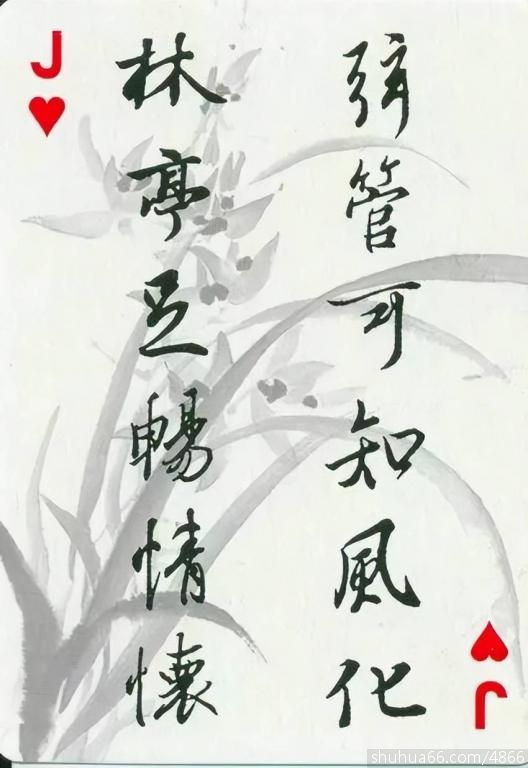 J
弦管可知風化
林亭足暢情懷
J
shuhua66.com/4866